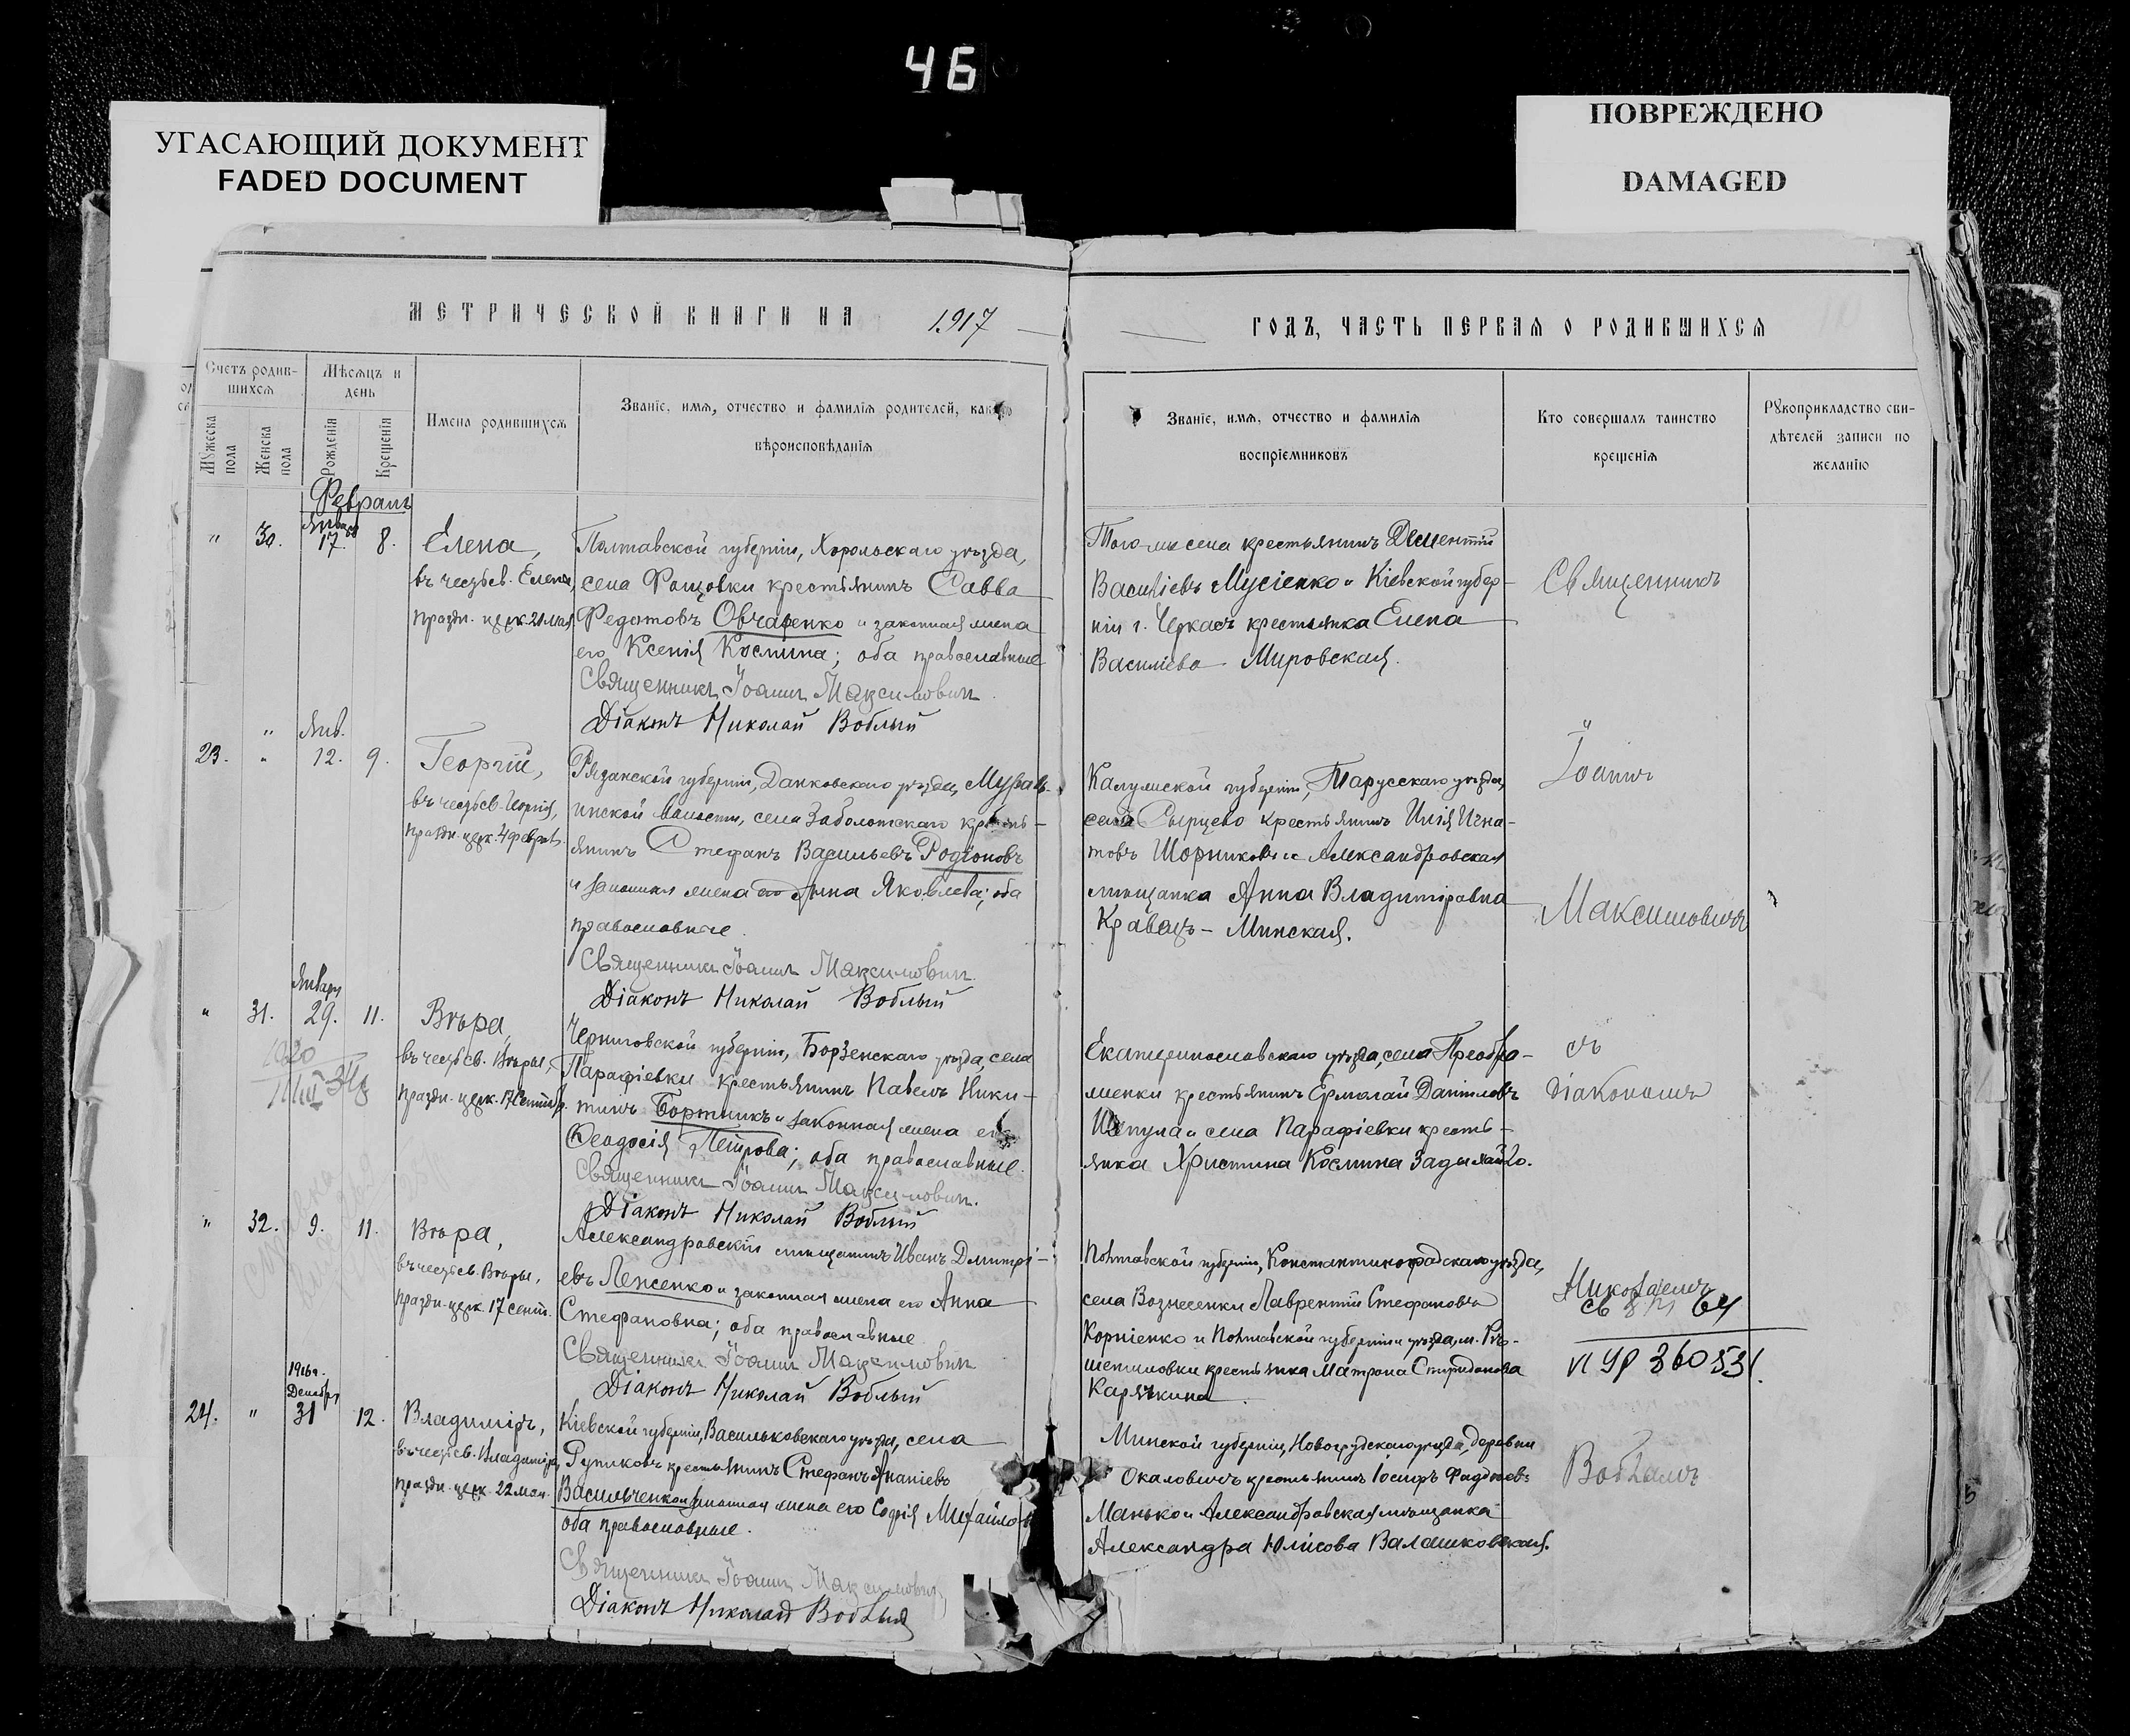 46
УГАСАЮЩИЙ ДОКУМЕНТ
FADED DOCUMENT
ПОВРЕЖДЕНО
DAMAGED
МЕТРИЧЕСКОЙ КНИГИ НА 1917
ГОДЪ, ЧАСТЬ ПЕРВАЯ О РОДИВШИХСЯ
Счетъ родив-
шихся
Мужеска пола
Женска пола
Мѣсяцъ и
день
Рожденія
Крещенія
Имена родившихся
Званіе, имя, отчество и фамилія родителей, какого
вѣроисповѣданія
Званіе, имя, отчество и фамилія
воспріемниковъ
Кто совершалъ таинство
крещенія
Рукоприкладство сви-
дѣтелей записи по
желанію
Февраль
" 30. 17. 8.
Елена,
въ честь св. Елены,
празд. церк. 21 мая
Полтавской губерніи, Хорольскаго уѣзда,
села крестьянинъ Савва
Федотовъ Овчаренко и законная жена
его Ксенія Космина; оба православные
Священникъ Іоаннъ Максимович
Діаконъ Николай Воблый
Того-же села крестьянинъ Дементій
Василіевъ Мусіенко и Кіевской губер-
ніи г. Черкасъ крестьянка Елена
Василіева Мировская.
Янв.
23. " 12. 9.
Георгій,
въ честь св. Георгія,
празд. церк. 4 феврал.
Рязанской губерніи, Данковскаго уѣзда, Мурав-
инской волости, села Заболотскаго кресть-
янинъ Стефанъ Васильевъ Родіоновъ
и законная жена его Анна Яковлева; оба
православные.
Священникъ Іоаннъ Максимович
Діаконъ Николай Воблый
Калужской губерніи, Тарусскаго уѣзда,
села крестьянинъ Илія Игна-
товъ Шорниковъ и Александровская
мѣщанка Анна Владиміровна
Кравецъ-Минская.
Январ
" 31. 29. 11.
Вѣра,
въ честь св. Вѣры,
праздн. церк. 17 Сентяб.
Черниговской губерніи, Борзенскаго уѣзда, села
Парафіевки крестьянинъ Павелъ Ники-
тинъ Бортникъ и законная жена его
Феодосія Петрова; оба православные.
Священникъ Іоаннъ Максимович.
Діаконъ Николай Воблый
Екатеринославскаго уѣзда, села Преобра-
женки крестьянинъ Ермолай Даніиловъ
и села Парафіевки кресть-
янка Христина Космина
" 32. 9. 11.
Вѣра,
въ честь св. Вѣры,
праздн. церк. 17 сент.
Александровскій мѣщанинъ Иванъ Дмитрі-
евъ и законная жена его Анна
Стефановна; оба православные.
Священникъ Іоаннъ Максимович
Діаконъ Николай Воблый
Полтавской губерніи, Константиноградскаго уѣзда,
села Вознесенки Лаврентій Стефановъ
Корніенко и Полтавской губерніи и уѣзда, м. Рѣ-
шетиловки крестьянка Матрона Спиридонова
Карякина.
1916 г.
Декабр
24. " 31 12.
Владиміръ,
въ честь св. Владиміра,
праздн. церк. 22 мая.
Кіевской губерніи, Васильковскаго уѣзда, села
крестьянинъ Стефанъ Ананіевъ
Васильченко и законная жена его Софія Михайлов
оба православные.
Священникъ Іоаннъ Максимович
Діаконъ Николай Воблый
Минской губерніи, Новогрудскаго уѣзда, деревни
Окаловичъ крестьянинъ Іосифъ Фаддѣевъ
Манько и Александровская мѣщанка
Александра Юлісова
Священникъ
Іоаннъ
Максимовичъ
съ
діакономъ
Николаемъ
Воблымъ